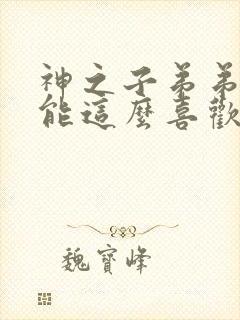 神之子弟弟
能這麼喜歡
魏寶峰